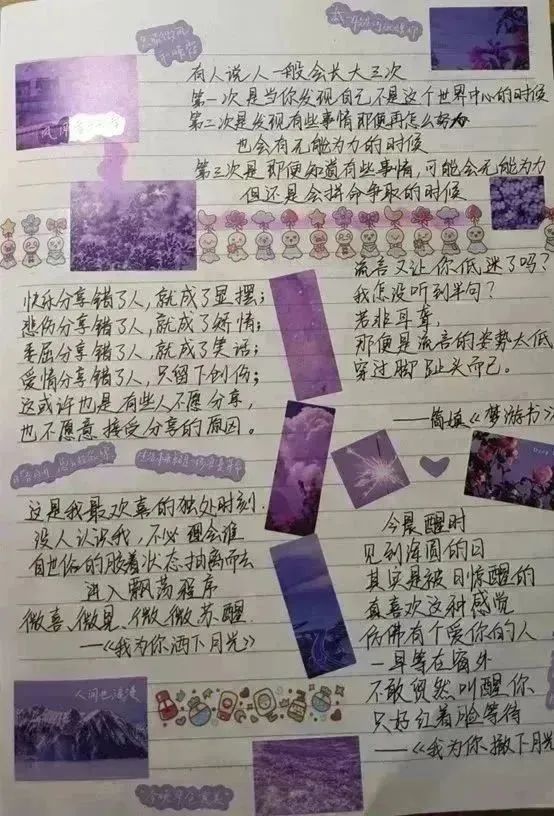 有人说人一般会长大三次
第一次是当你发现自己不是这个世界中心的时候
第二次是发现有些事情即便再怎么努力
也会有无能为力的时候
第三次是即便知道有些事情,可能会无能为力
但还是会拼命争取的时候
流言又让你低迷了吗?
我怎没听到半句?
若非耳聋,
那便是流言的姿势太低
穿过脚趾头而已。
——简媜《梦游书》
快乐分享错了人,就成了显摆;
悲伤分享错了人,就成了矫情;
委屈分享错了人,就成了笑话;
爱情分享错了人,只留下创伤;
这或许也是有些人不愿分享,
也不愿意接受分享的原因。
这是我最欢喜的独处时刻.
没人认识我,不必理会谁
自世俗的胶着状态抽离而去
进入飘荡程序
微喜、微晃、微微苏醒.
——《我为你洒下月光》
今晨醒时
见到浑圆的日
其实是被日惊醒的
真喜欢这种感觉
仿佛有个爱你的人
一早等在窗外
不敢贸然叫醒你
只好红着脸等待
——《我为你撒下月光
人间也浪漫